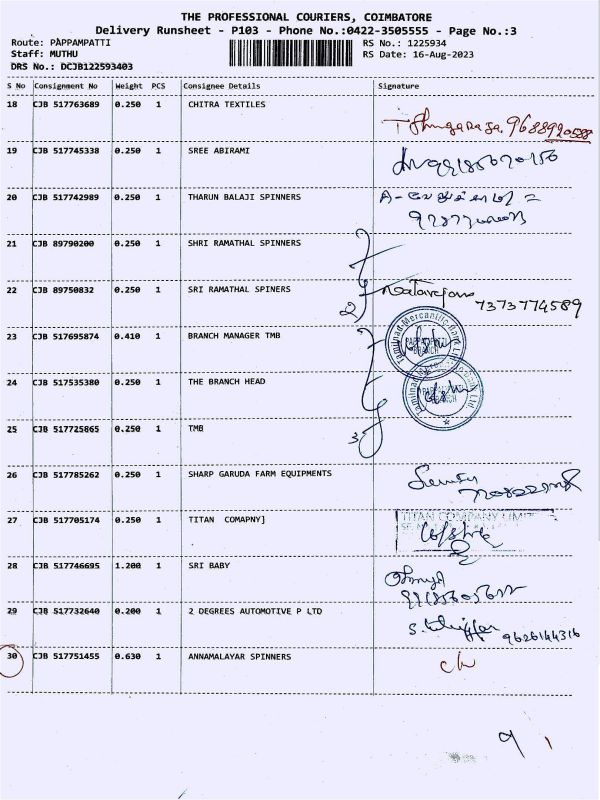 THE PROFESSIONAL COURIERS, COIMBATORE
Delivery Runsheet - P103 - Phone No.:0422-3505555 - Page No.:3
Route: PAPPAMPATTI RS No.: 1225934
Staff: MUTHU RS Date: 16-Aug-2023
DRS No.: DCJB122593403
S No Consignment No Weight PCS Consignee Details Signature
18 CJB 517763689 0.250 1 CHITRA TEXTILES
19 CJB 517745338 0.250 1 SREE ABIRAMI
20 CJB 517742989 0.250 1 THARUN BALAJI SPINNERS
21 CJB 89790200 0.250 1 SHRI RAMATHAL SPINNERS
22 CJB 89750832 0.250 1 SRI RAMATHAL SPINERS 2) Natarajan 7373774589
23 CJB 517695874 0.410 1 BRANCH MANAGER TMB
24 CJB 517535380 0.250 1 THE BRANCH HEAD
25 CJB 517725865 0.250 1 TMB 3)
26 CJB 517785262 0.250 1 SHARP GARUDA FARM EQUIPMENTS
27 CJB 517705174 0.250 1 TITAN COMAPNY] TITAN COMPANY LIMITED
28 CJB 517746695 1.200 1 SRI BABY
29 CJB 517732640 0.200 1 2 DEGREES AUTOMOTIVE P LTD 9626144316
30 CJB 517751455 0.630 1 ANNAMALAYAR SPINNERS
9 1